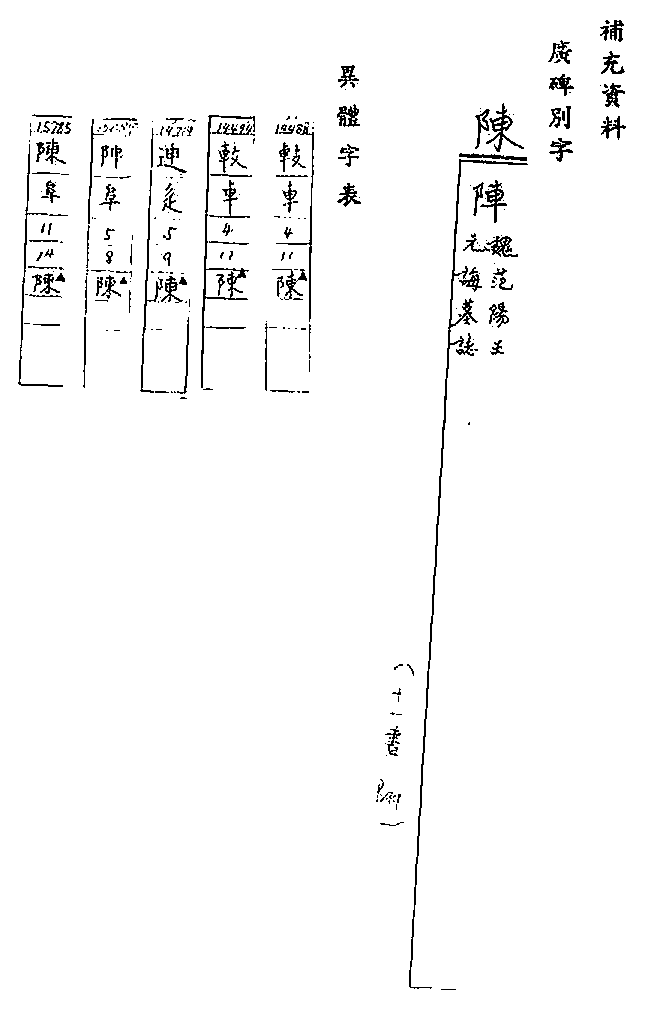 補充資料
廣碑別字
陳
陣
魏范陽王
元誨墓誌
(十一書
異體字表
車
4
11
陳▲
14494
車
4
11
陳▲
辵
5
9
陳▲
帥
阜
5
8
陳▲
15785
陳
阜
11
14
陳▲